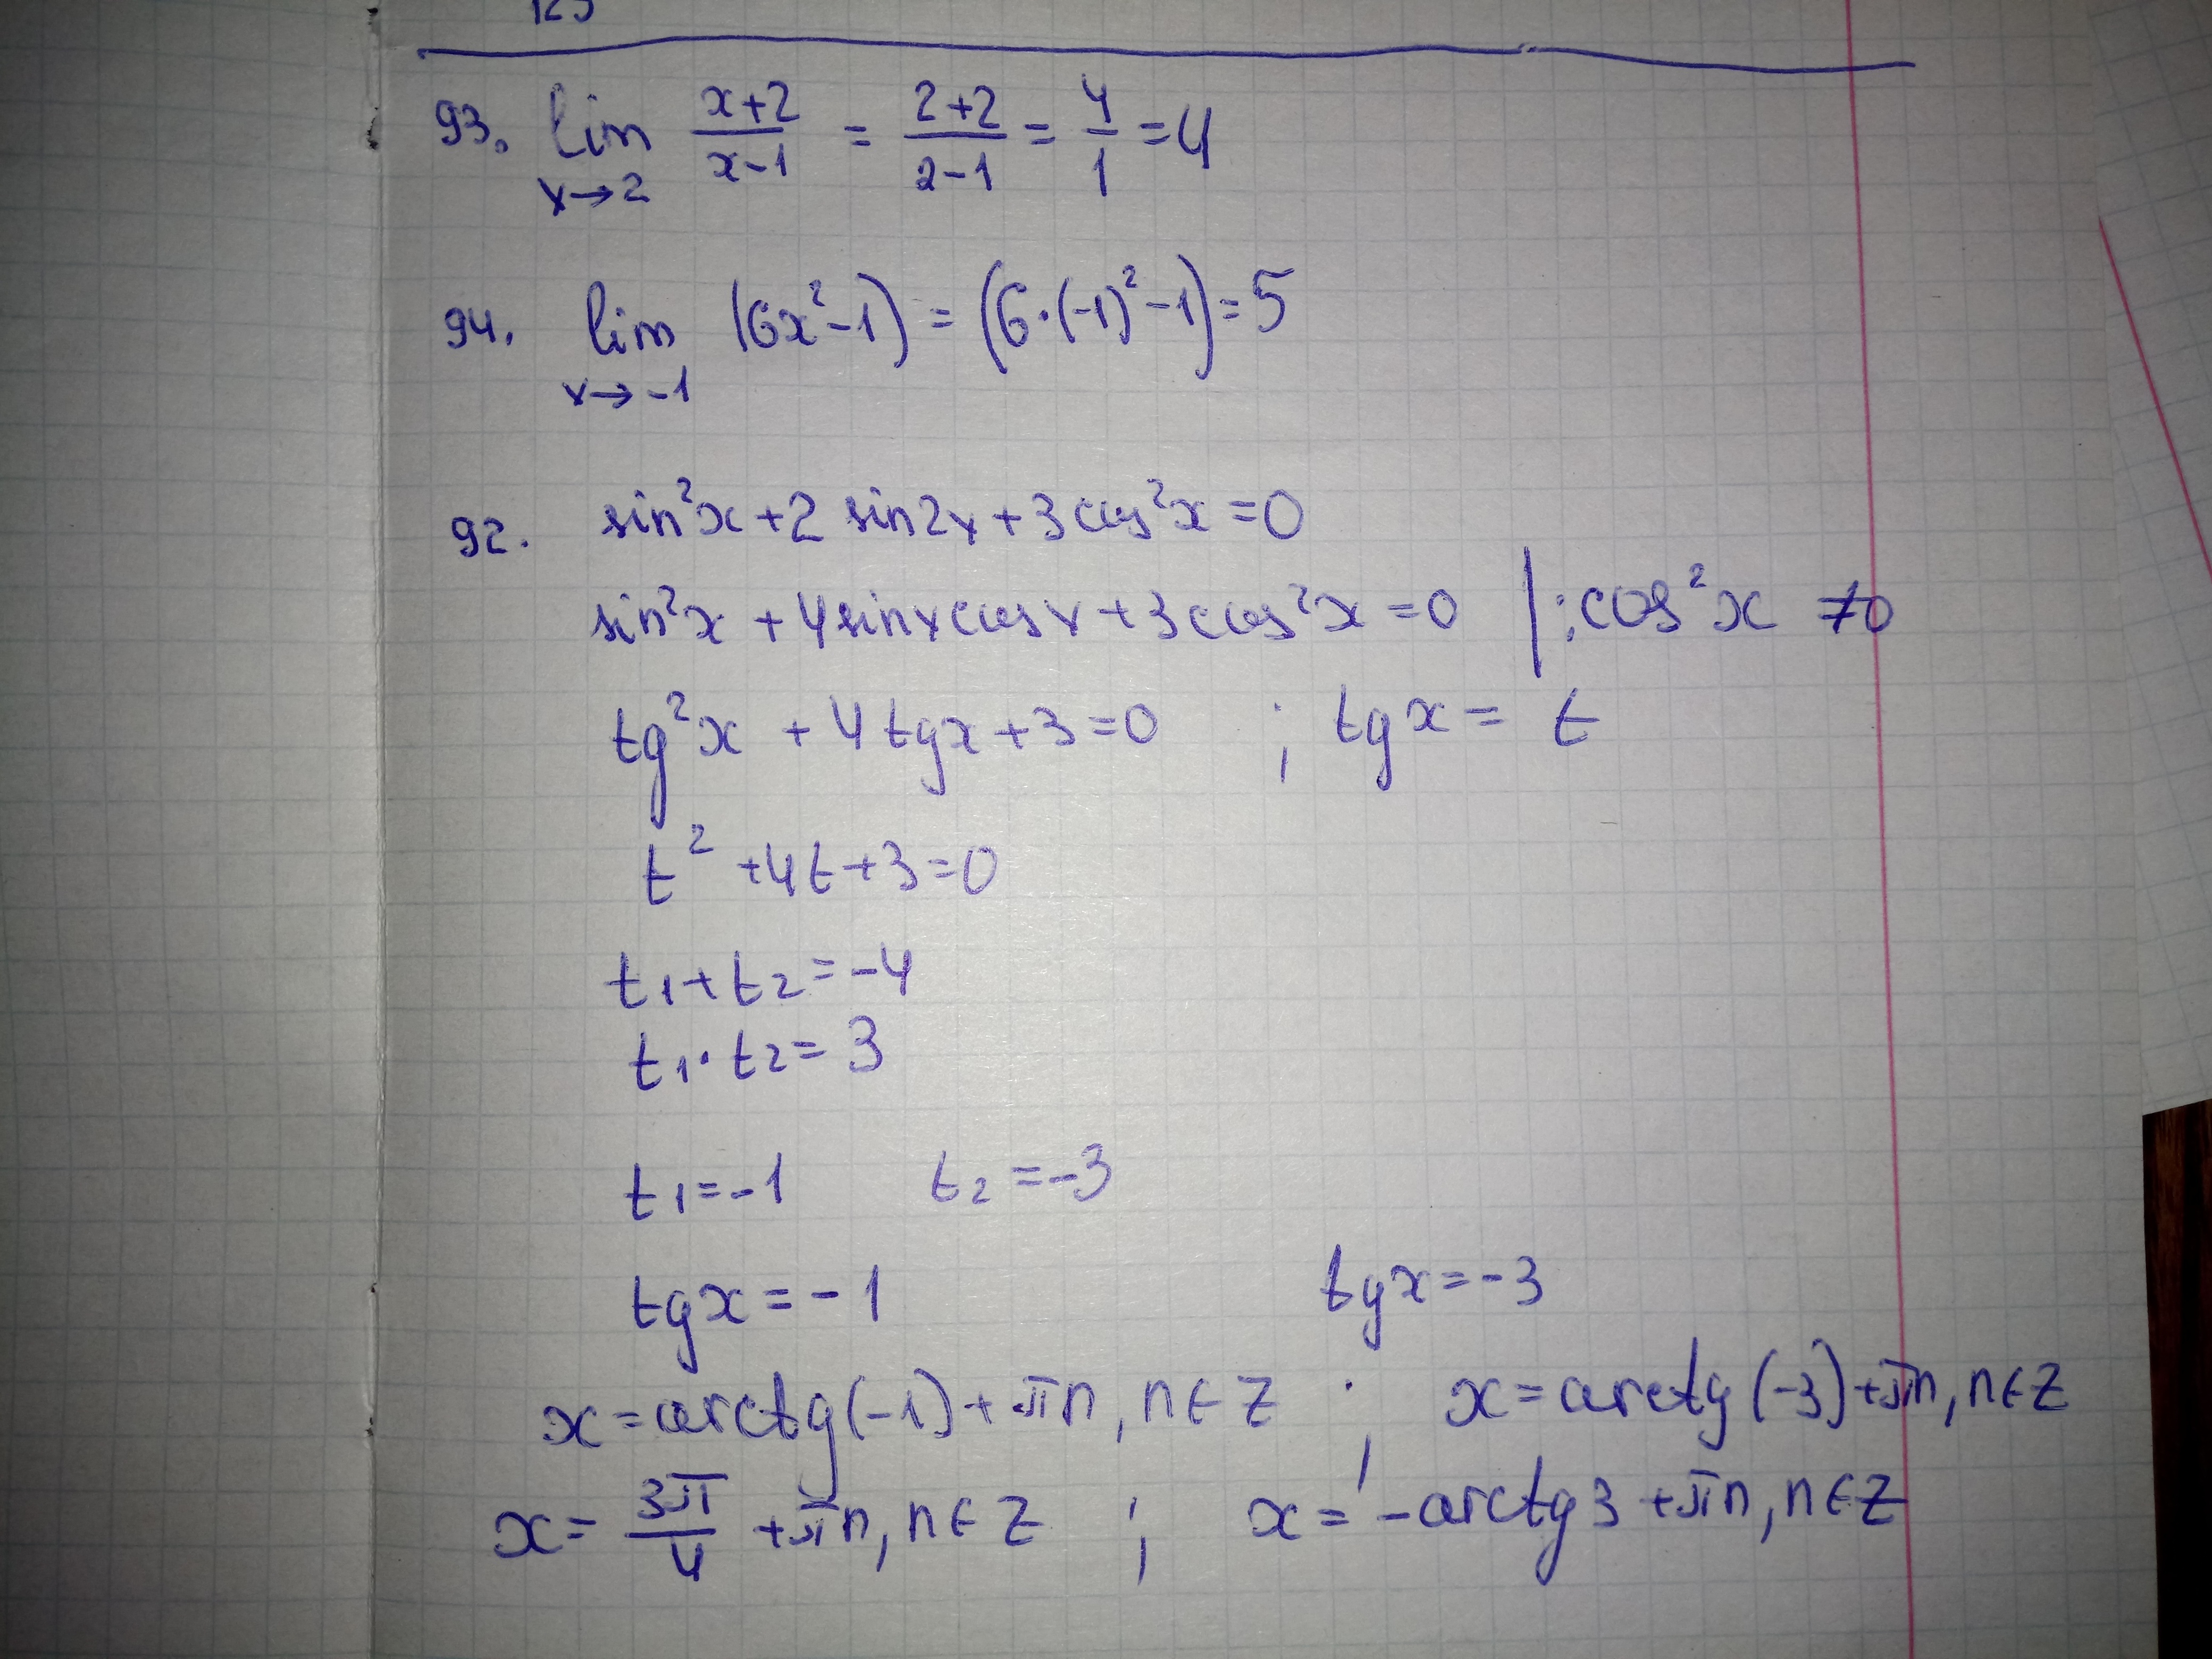 125
93. lim x→2 (x+2)/(x-1) = (2+2)/(2-1) = 4/1 = 4
94. lim x→-1 (6x²-1) = (6·(-1)²-1) = 5
92. sin²x + 2 sin2x + 3cos²x = 0
sin²x + 4sinxcosx + 3cos²x = 0 | :cos²x ≠0
tg²x + 4tgx + 3 = 0 ; tgx = t
t² + 4t + 3 = 0
t₁ + t₂ = -4
t₁ · t₂ = 3
t₁ = -1 t₂ = -3
tgx = -1 tgx = -3
x = arctg(-1) + πn, n∈Z ; x = arctg(-3) + πn, n∈Z
x = 3π/4 + πn, n∈Z ; x = -arctg3 + πn, n∈Z